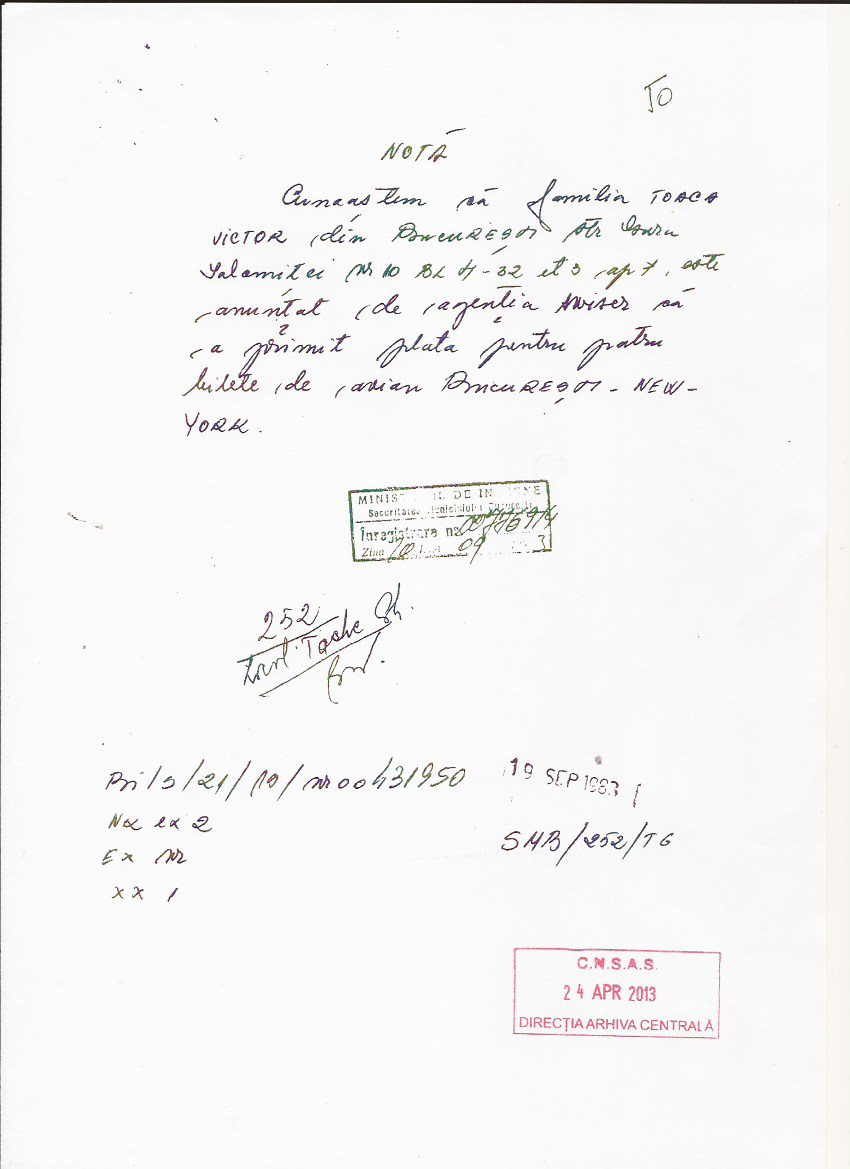 50
NOTĂ
Cunoaștem că familia TOACA
VICTOR din BUCUREȘTI str Gura
Ialomiței Nr 10 BL H-32 et 3 ap 7, este
anunțat de agenția că
a primit plata pentru patru
bilete de avion BUCUREȘTI - NEW-
YORK.
DE IN
Securitatea Municipiului
Înregistrare nr.
Ziua 20 09
252
Bi/S/21/ /nr 00431950
Nr ex 2
Ex Nr
XX 1
19 SEP 1983
SMB/252/TG
C.N.S.A.S.
24 APR 2013
DIRECȚIA ARHIVA CENTRALĂ